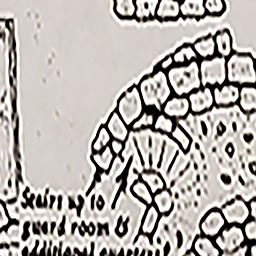 Stairs up to
guard room &
additional quarters